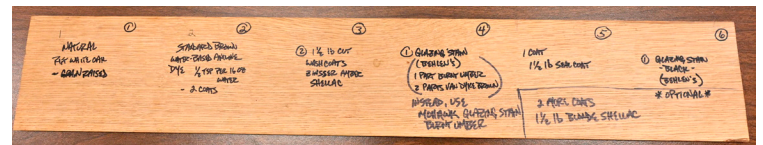 1 ①
NATURAL
RIFT WHITE OAK
- GRAIN RAISED
2 ②
STANDARD BROWN
WATER-BASED ANILINE
DYE ½ TSP PER 16 OZ
WATER
- 2 COATS
③
② 1½ lb CUT
WASHCOATS
ZINSSER AMBER
SHELLAC
④
① GLAZING STAIN
- (BEHLEN'S)
1 PART BURNT UMBER
2 PARTS VAN DYKE BROWN
INSTEAD, USE
MOHAWK GLAZING STAIN
BURNT UMBER
⑤
1 COAT
1½ lb SEAL COAT
2 MORE COATS
1½ lb BLONDE SHELLAC
⑥
① GLAZING STAIN
- BLACK -
(BEHLEN'S)
* OPTIONAL *